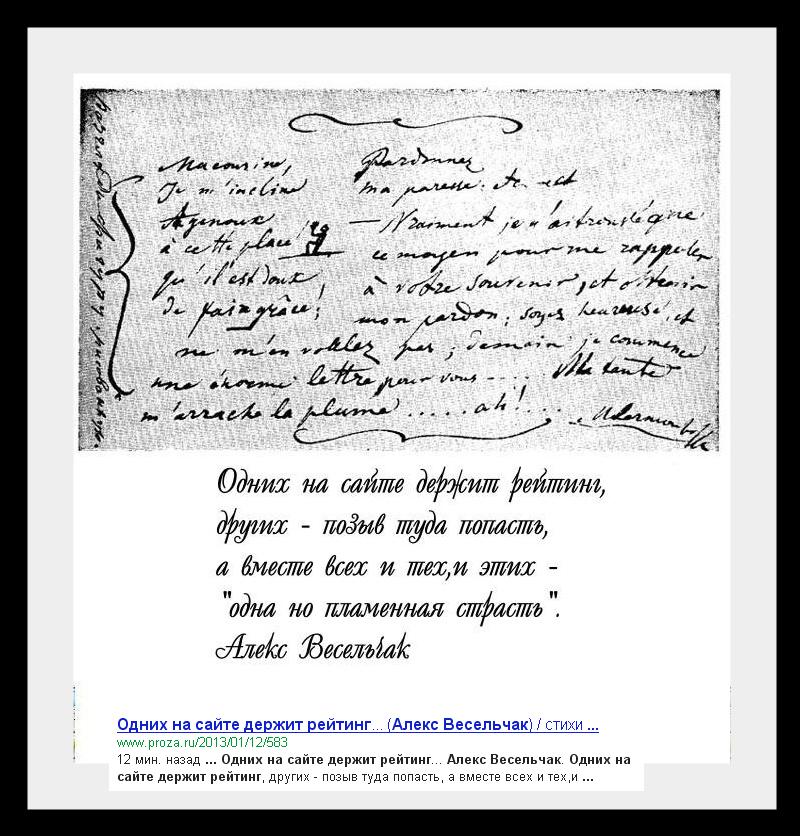 Ma cousine,
Je m'incline
A genoux
à cette place!
qu'il est doux
de faire grâce!
Pardonnez
ma paresse
— Vraiment je n'ai trouvé que
ce moyen pour me rappeler
à votre souvenir, et obtenir
mon pardon; soyez heureuse, et
ne m'en voulez pas; demain je commence
une énorme lettre pour vous .... Ma tante
m'arrache la plume ..... ah! ... M Lermontoff
Одних на сайте держит рейтинг,
других - позыв туда попасть,
а вместе всех и тех,и этих -
"одна но пламенная страсть".
Алекс Весельчак
Одних на сайте держит рейтинг... (Алекс Весельчак) / стихи ...
www.proza.ru/2013/01/12/583
12 мин. назад ... Одних на сайте держит рейтинг... Алекс Весельчак. Одних на
сайте держит рейтинг, других - позыв туда попасть, а вместе всех и тех,и ...